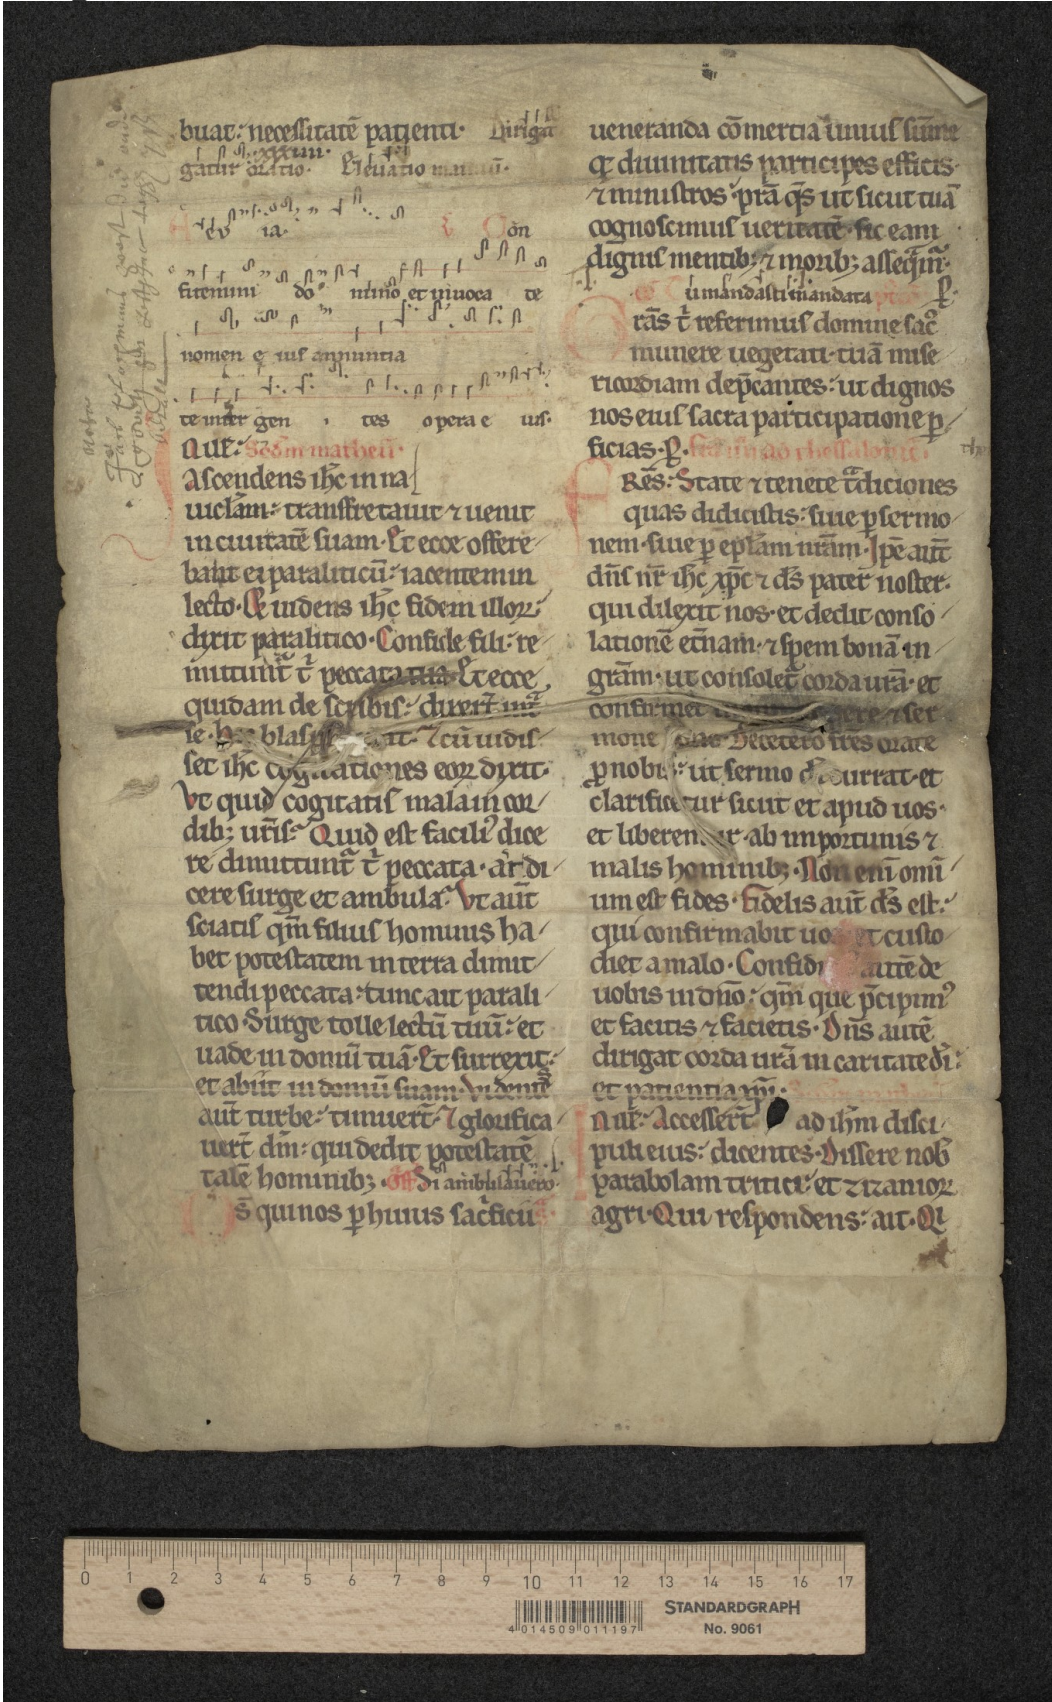 buat: necessitatē patienti· Dirigat
gatur oratio· Eleuatio manuū·
xxxiiii·
ev ia· Con
fitemini do mino et inuoca te
nomen e ius annuntia
te inter gen tes opera e ius·
Auē: Scdm matheū·
Ascendens ihc in na
uiclam: transfretauit ⁊ uenit
in ciuitatē suam· Et ecce offere
bant ei paraliticū: iacentem in
lecto· Et uidens ihc fidem illoꝝ:
dixit paralitico· Confide fili: re
mittunt᷑ t peccata tua· Et ecce
quidam de scribis: dixert intᵃ
se· Hic blas
⁊ cū uidis
set ihc cogitationes eoꝝ dixit·
Vt quid cogitatis mala in cor
dibꝫ uris? Quid est facili᷒ dice
re dimittunt᷑ t peccata· aut di
cere surge et ambula? Vt aut
sciatis qm filius hominis ha
bet potestatem in terra dimit
tendi peccata: tunc ait parali
tico· Surge tolle lectū tuū: et
uade in domū tuā· Et surrexit:
et abiit in domū suam· Videntes
aut turbe: timuert· ⁊ glorifica
uert dm: qui dedit potestatē
talē hominibꝫ· Off Si ambulauero·
Ds qui nos ꝑ huius sacficii
ueneranda cōmertia unius sūme
qꝫ diuinitatis participes efficis·
⁊ ministros· prā qs ut sicut tuā
cognoscimus ueritatē· sic eam
dignis mentibꝫ ⁊ moribꝫ assequam᷑·
u mandasti mandata
Grās t referimus domine sac᷒
munere uegetati· tuā mise
ricordiam dep̄cantes: ut dignos
nos eius sacra participatione ꝑ
ficias· ꝑ· ad thessalonic·
FRēs: State ⁊ tenete tᵃdiciones
quas didicistis: siue ꝑ sermo
nem· siue ꝑ eplam nrām· Ipē aut
dns nr ihc xpc ⁊ ds pater noster·
qui dilexit nos· et dedit conso
lationē etnam· ⁊ spem bonā in
grām· ut consolet᷑ corda urā· et
confirmet ⁊ ser
mone Decetero frēs orate
ꝓ nobis: ut sermo currat· et
clarificetur sicut et apud uos·
et liberemur· ab importunis ⁊
malis hominibꝫ· Non eni omi
um est fides· Fidelis aut ds est:
qui confirmabit uos et custo
diet a malo· Confidi autē de
uobis in dno: qm que p̄cipim᷒
et facitis ⁊ facietis· Dns autē
dirigat corda urā in caritate di:
et patientia xpi·
In illt: Accessert ad ihm disci
puli eius: dicentes· Dissere nob
parabolam tritici: et zizanioꝝ
agri· Qui respondens: ait· Qi
0 1 2 3 4 5 6 7 8 9 10 11 12 13 14 15 16 17
STANDARDGRAPH
No. 9061
4 014509 011197